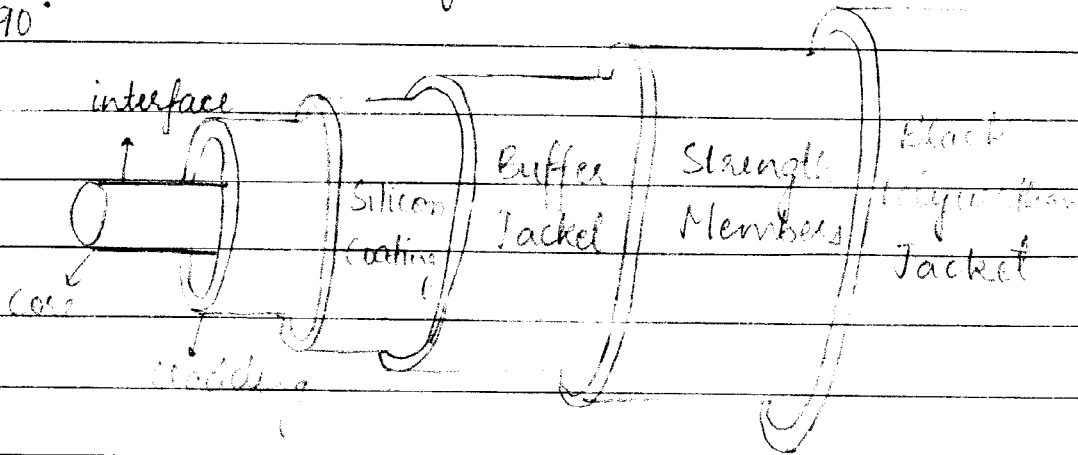 90°
interface
Core
Cladding
Silicon
Coating
Buffer
Jacket
Strength
Members
Black
Jacket